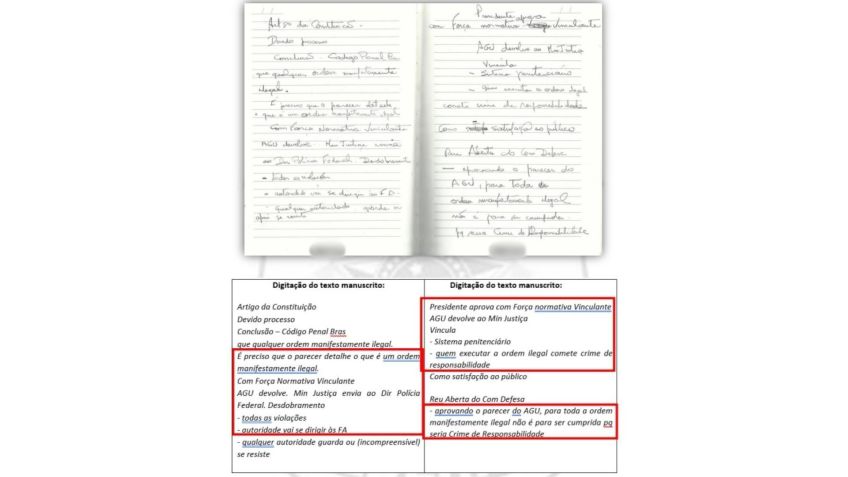 Artigo da Constituição.
Devido processo
Conclusão - Código Penal Bras
que qualquer ordem manifestamente
ilegal.
É preciso que o parecer detalhe
o que é um ordem manifestamente ilegal
Com Força Normativa Vinculante
AGU devolve. Min Justiça envia
ao Dir Polícia Federal. Desdobramento
- todas as violações
- autoridade vai se dirigir às FA.
- qualquer autoridade guarda ou
se resiste
Presidente aprova
com Força normativa Vinculante
AGU devolve ao Min Justiça
Vincula
- Sistema penitenciário
- quem executar a ordem ilegal
comete crime de responsabilidade
Como satisfação ao público
Reu Aberta do Com Defesa
- aprovando o parecer do
AGU, para toda a
ordem manifestamente ilegal
não é para ser cumprida
pq seria Crime de Responsabilidade
Digitação do texto manuscrito:
Artigo da Constituição
Devido processo
Conclusão – Código Penal Bras
que qualquer ordem manifestamente ilegal.
É preciso que o parecer detalhe o que é um ordem
manifestamente ilegal.
Com Força Normativa Vinculante
AGU devolve. Min Justiça envia ao Dir Polícia
Federal. Desdobramento
- todas as violações
- autoridade vai se dirigir às FA
- qualquer autoridade guarda ou (incompreensível)
se resiste
Digitação do texto manuscrito:
Presidente aprova com Força normativa Vinculante
AGU devolve ao Min Justiça
Vincula
- Sistema penitenciário
- quem executar a ordem ilegal comete crime de
responsabilidade
Como satisfação ao público
Reu Aberta do Com Defesa
- aprovando o parecer do AGU, para toda a ordem
manifestamente Ilegal não é para ser cumprida pq
seria Crime de Responsabilidade